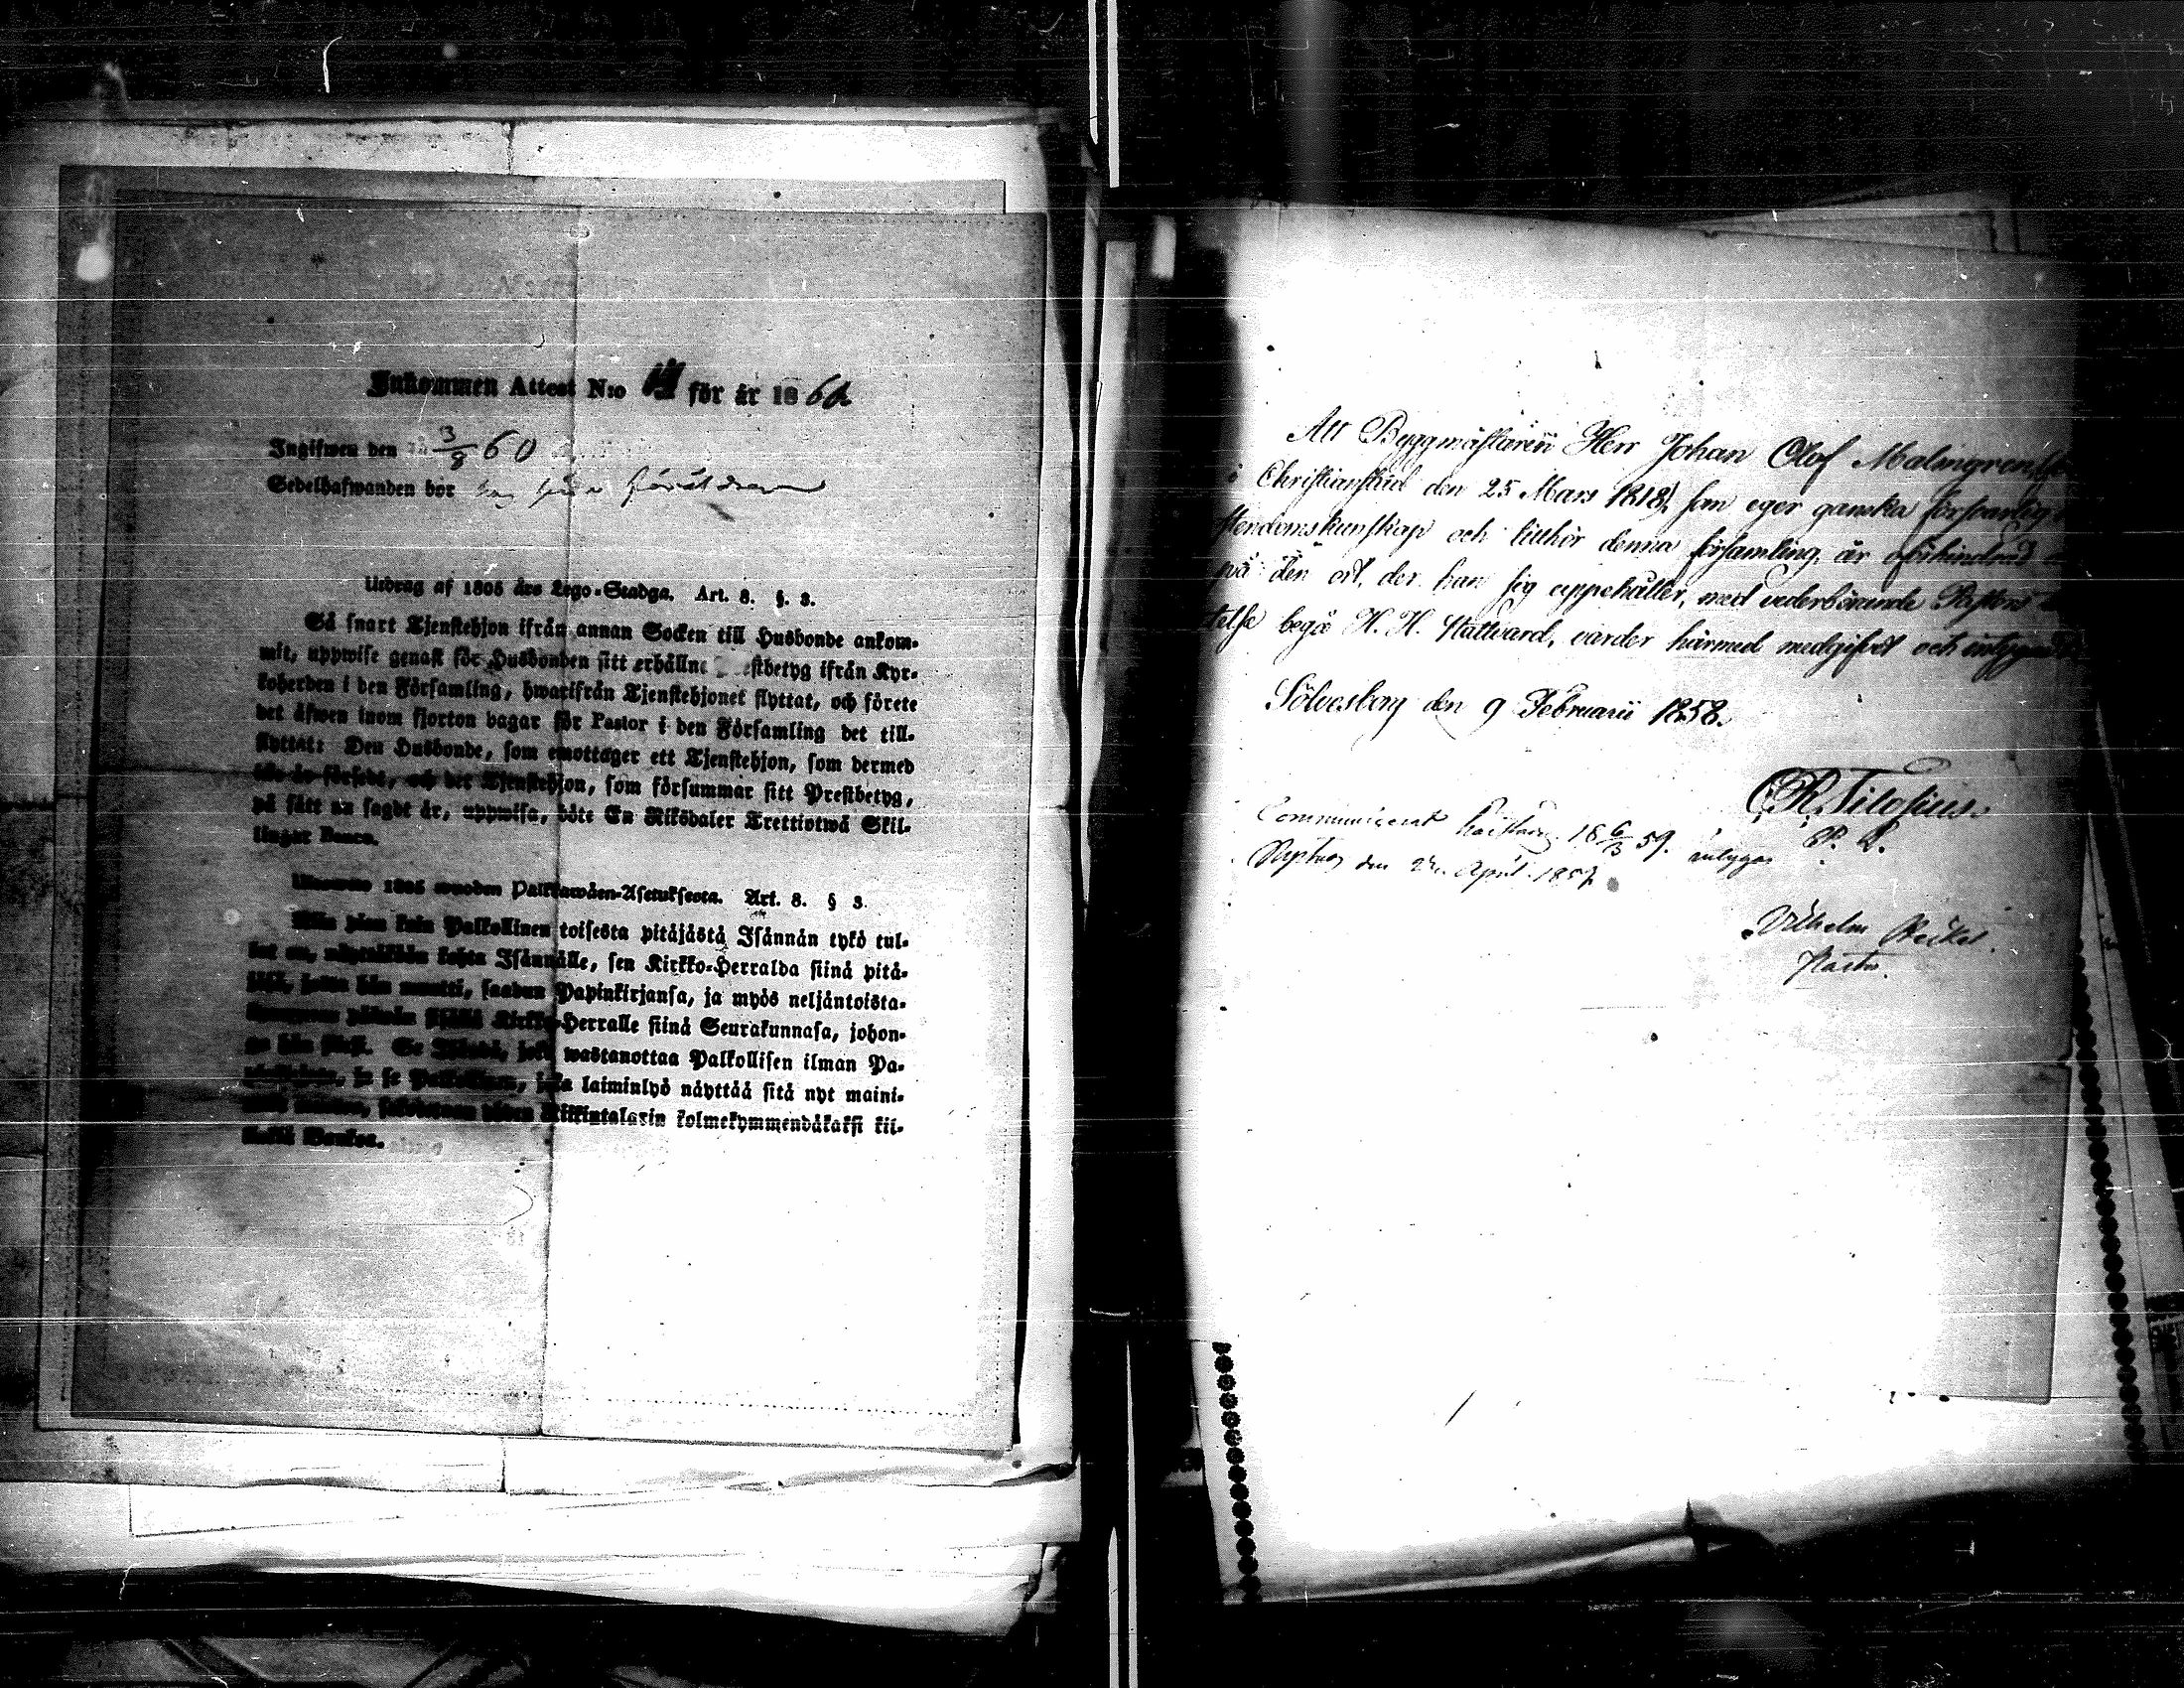 Inkommen Attest N:o för år 1860
Ingifwen den 3/8 60
Sedelhafwanden bor hos sina föräldrar
Utdrag af 1805 års Lego-Stadga. Art. 8. §. 3.
Så snart Tjenstehjon ifrån annan Socken till Husbonde ankom-
mit, uppwise genast för Husbonden sitt erhållne stbetyg ifrån Kyr-
koherden i den Församling, hwarifrån Tjenstehjonet flyttat, och förete
det äfwen inom fjorton dagar för Pastor i den Församling det till-
flyttat: Den Husbonde, som emottager ett Tjenstehjon, som dermed
icke är försedt, och det Tjenstehjon, som försummar sitt Prestbetyg,
på sätt nu sagdt är, uppwisa, böte En Riksdaler Trettiotwå Skil-
lingar Banco.
1805 wuoden Palkkawäen-Asetuksesta. Art. 8. § 3.
Niin pian kuin Palkollinen toisesta pitäjästä Isännän tykö tul-
lut on, kohta Isännälle, sen Kirkko-Herralda siinä pitä-
jäsä, hän muutti, saadun Papinkirjansa, ja myös neljäntoista-
Kirkko-Herralle siinä Seurakunnasa, johon-
ga hän Se Isändä, joka wastanottaa Palkollisen ilman Pa-
ja se Palkollinen, joka laiminlyö näyttää sitä nyt maini-
Riikintalarin kolmekymmendäkaksi kil-
Bankoa.
Att Byggmästaren Herr Johan Olof Malmgren
i Christianstad den 25 Mars 1818, som eger ganska försvarlig
stendomskunskap och tillhör denna församling, är oförhindrad
på den ort, der han sig uppehåller, med vederbörande Pastors
telse begå H. H. Nattvard, varder härmed medgifvet och intygadt
Sölvesborg den 9 Februarii 1858.
C. R. Filosius.
P. L.
Communicerat 18 6/3 59. intygar
Nystad den April 1859
Wilhelm
Pastor.